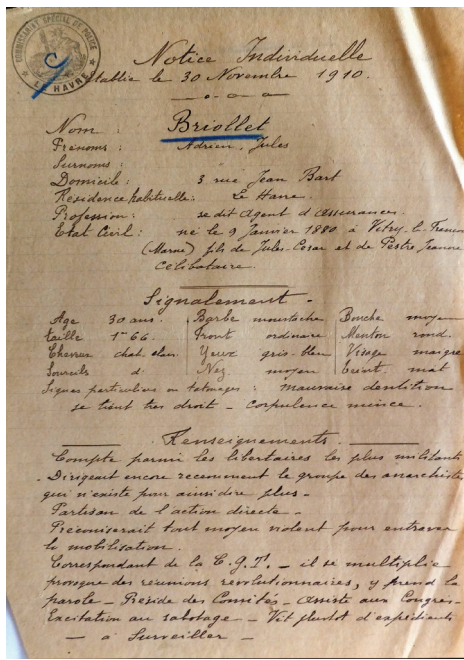 COMMISSARIAT SPÉCIAL DE POLICE
HAVRE
Notice Individuelle
établie le 30 Novembre 1910.
Nom : Briollet
Prénoms : Adrien, Jules
Surnoms :
Domicile : 3 rue Jean Bart
Résidence habituelle : Le Havre
Profession : se dit Agent d'Assurances.
Etat Civil : né le 9 Janvier 1880 à Vitry-le-François
(Marne) fils de Jules-Cesar et de Pestre Jeanne
Célibataire.
Signalement -
Age 30 ans. Barbe moustache Bouche moyen
taille 1m66. Front ordinaire Menton rond.
Cheveux chat. clair. Yeux gris-bleu Visage maigre
Sourcils d: Nez moyen teint mat
Signes particuliers ou tatouages : mauvaise dentition
se tient très droit - corpulence mince.
Renseignements.
Compte parmi les libertaires les plus militants
- Dirigeant encore récemment le groupe des anarchistes
qui n'existe pour ainsi dire plus -
Partisan de l'action directe -
Préconiserait tout moyen violent pour entraver
la mobilisation.
Correspondant de la C.G.T. - il se multiplie
provoque des réunions révolutionnaires, y prend la
parole - Préside des Comités - Assiste aux Congrès -
Excitation au sabotage - Vit plutôt d'expédients
- à Surveiller -